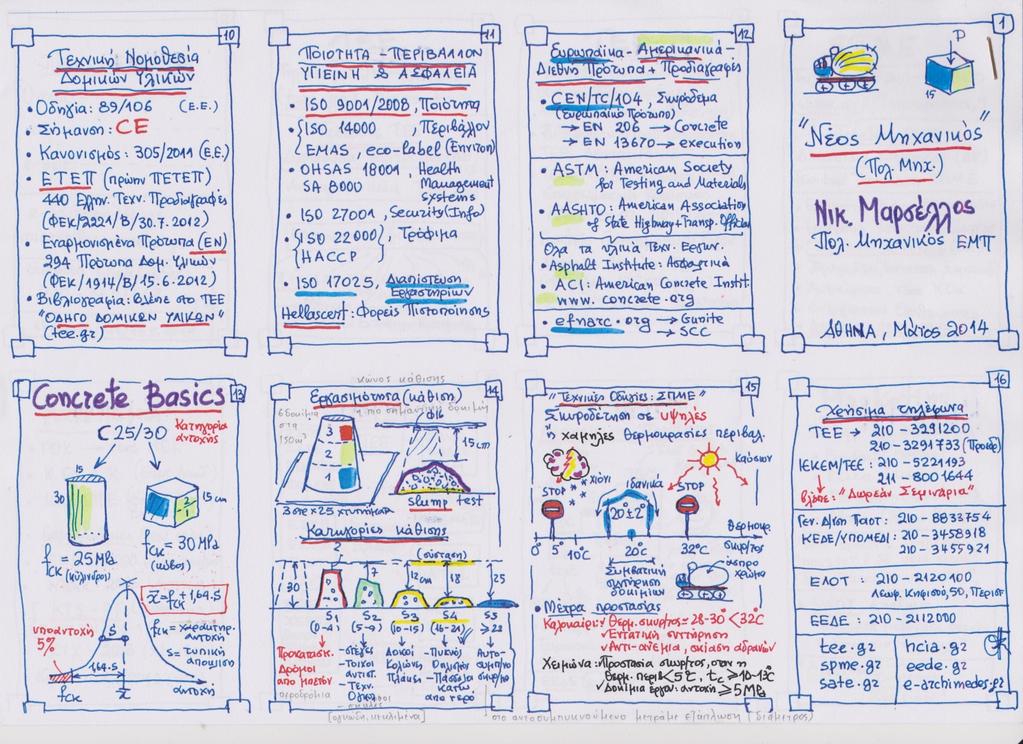 10
Τεχνική Νομοθεσία
Δομικών Υλικών
• Οδηγία: 89/106 (Ε.Ε.)
• Σήμανση: CE
• Κανονισμός: 305/2011 (Ε.Ε.)
• ΕΤΕΠ (πρώην ΠΕΤΕΠ)
440 Ελλην. Τεχν. Προδιαγραφές
(ΦΕΚ/2221/Β/30.7.2012)
• Εναρμονισμένα Πρότυπα (ΕΝ)
294 Πρότυπα Δομ. Υλικών
(ΦΕΚ/1914/Β/15.6.2012)
• Βιβλιογραφία: βλέπε στο ΤΕΕ
"ΟΔΗΓΟ ΔΟΜΙΚΩΝ ΥΛΙΚΩΝ"
(tee.gr)
11
ΠΟΙΟΤΗΤΑ - ΠΕΡΙΒΑΛΛΟΝ
ΥΓΙΕΙΝΗ & ΑΣΦΑΛΕΙΑ
• ISO 9001/2008, Ποιότητα
• ISO 14000, Περιβάλλον
EMAS, eco-label
• OHSAS 18001, Health
SA 8000 Management
systems
• ISO 27001, Security (Info)
• ISO 22000, Τρόφιμα
HACCP
• ISO 17025, Διαπίστευση
Εργαστηρίων
Hellascert: Φορείς Πιστοποίησης
12
Ευρωπαϊκά - Αμερικανικά -
Διεθνή Πρότυπα + Προδιαγραφές
• CEN/TC/104, Σκυρόδεμα
(Ευρωπαϊκό Πρότυπο)
→ EN 206 → Concrete
→ EN 13670 → execution
• ASTM: American Society
for Testing and Materials
• AASHTO: American Association
of State Highway + Transp. Official
Όλα τα υλικά Τεχν. Έργων.
• Asphalt Institute: Ασφαλτικά
• ACI: American Concrete Instit.
www.concrete.org
• efnarc.org → Gunite
→ SCC
1
P
15
"Νέος Μηχανικός"
(Πολ. Μηχ.)
Νικ. Μαρσέλλος
Πολ. Μηχανικός ΕΜΠ
ΑΘΗΝΑ, Μάιος 2014
Concrete Basics 13
C 25/30 Κατηγορία
αντοχής
15
30
15 cm
fck = 25 MPa
(κύλινδροι)
fck = 30 MPa
(κύβοι)
x̄ = fck + 1,64.s
υποαντοχή
5%
S
fck = χαρακτηρ.
αντοχή
S = τυπική
απόκλιση
1,64.s
fck
x̄
αντοχή
κώνος κάθισης
14
Εργασιμότητα (κάθιση)
η πιο σημαντική δοκιμή
6 δοκίμια
στα
150 m³
Φ16
3
2
1
15 cm
Slump test
3 στρ x 25 χτυπήματα
Κατηγορίες κάθισης
(σύσταση)
30
2
7
12 cm
18
25
S1 S2 S3 S4 S5
(0-4) (5-9) (10-15) (16-21) ≥22
Προκατασκ.
Δρόμοι
από μπετόν
αεροδρόμια
- στέγες
- τοίχοι
αντιστ.
- Τεχν.
Ογκώδ.
Δοκοί
Κολώνες
Πλάκες
- Πυκνός
Οπλισμός
- Πάσσαλοι
κάτω
από νερό
Αυτο-
συμπυκνο
σκυρόδ.
15
"Τεχνικές Οδηγίες: ΣΠΜΕ"
Σκυροδέτηση σε υψηλές
ή χαμηλές θερμοκρασίες περιβαλ.
STOP
χιόνι
ιδανικά
20±2°
STOP
Καύσων
θερμοκρ.
σκυρ/τος
0° 5° 10°C 20°C 32°C
Συμβατική
συντήρηση
δοκιμίων
άσπρο
χρώμα
• Μέτρα προστασίας
Καλοκαίρι: √ Θερμ. σκυρ/τος: 28-30° < 32°C
√ Εντατική συντήρηση
√ Αντι-ανέμια, σκίαση αδρανών
Χειμώνα: √ Προστασία σκυρ/τος, όταν η
θερμ. περιβ < 5°C
√ Δοκίμια έργου: αντοχή ≥ 5 MPa
στο αυτοσυμπυκνούμενο μετράμε εξάπλωση (διάμετρος)
16
Χρήσιμα τηλέφωνα
ΤΕΕ → 210-3291200
210-3291733
ΙΕΚΕΜ/ΤΕΕ: 210-5221193
211-8001644
βλέπε: "Δωρεάν Σεμινάρια"
Γεν. Δ/νση Ποιοτ: 210-8833754
ΚΕΔΕ/ΥΠΟΜΕΔΙ: 210-3458918
210-3455921
ΕΛΟΤ: 210-2120100
Λεωφ. Κηφισού, 50, Περιστ
ΕΕΔΕ: 210-2112000
tee.gr
spme.gr
sate.gr
hcia.gr
eede.gr
e-archimedes.gr